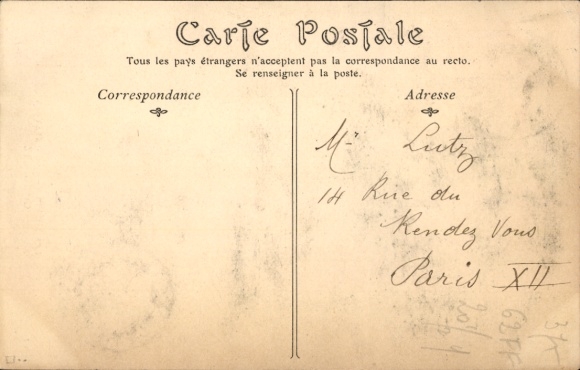 Carte Postale
Tous les pays étrangers n'acceptent pas la correspondance au recto.
Se renseigner à la poste.
Correspondance
Adresse
Mr Lutz
14 Rue du
Rendez Vous
Paris XII